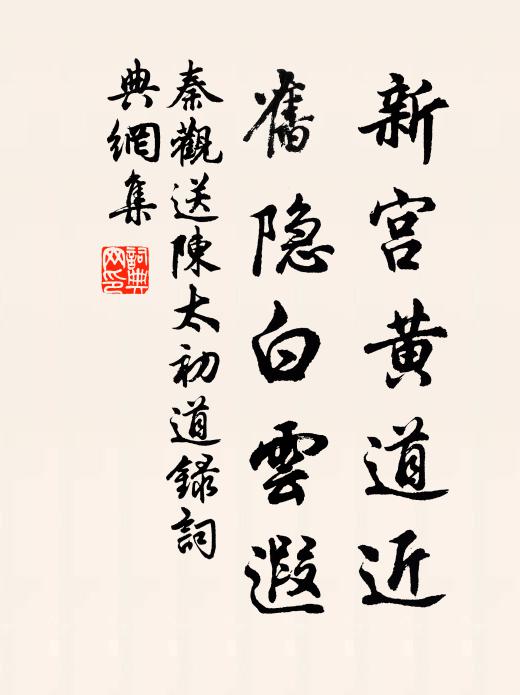 新宫黄道近
舊隐白雲遐
秦觀送陳太初道錄詞
典網集
詞典網印